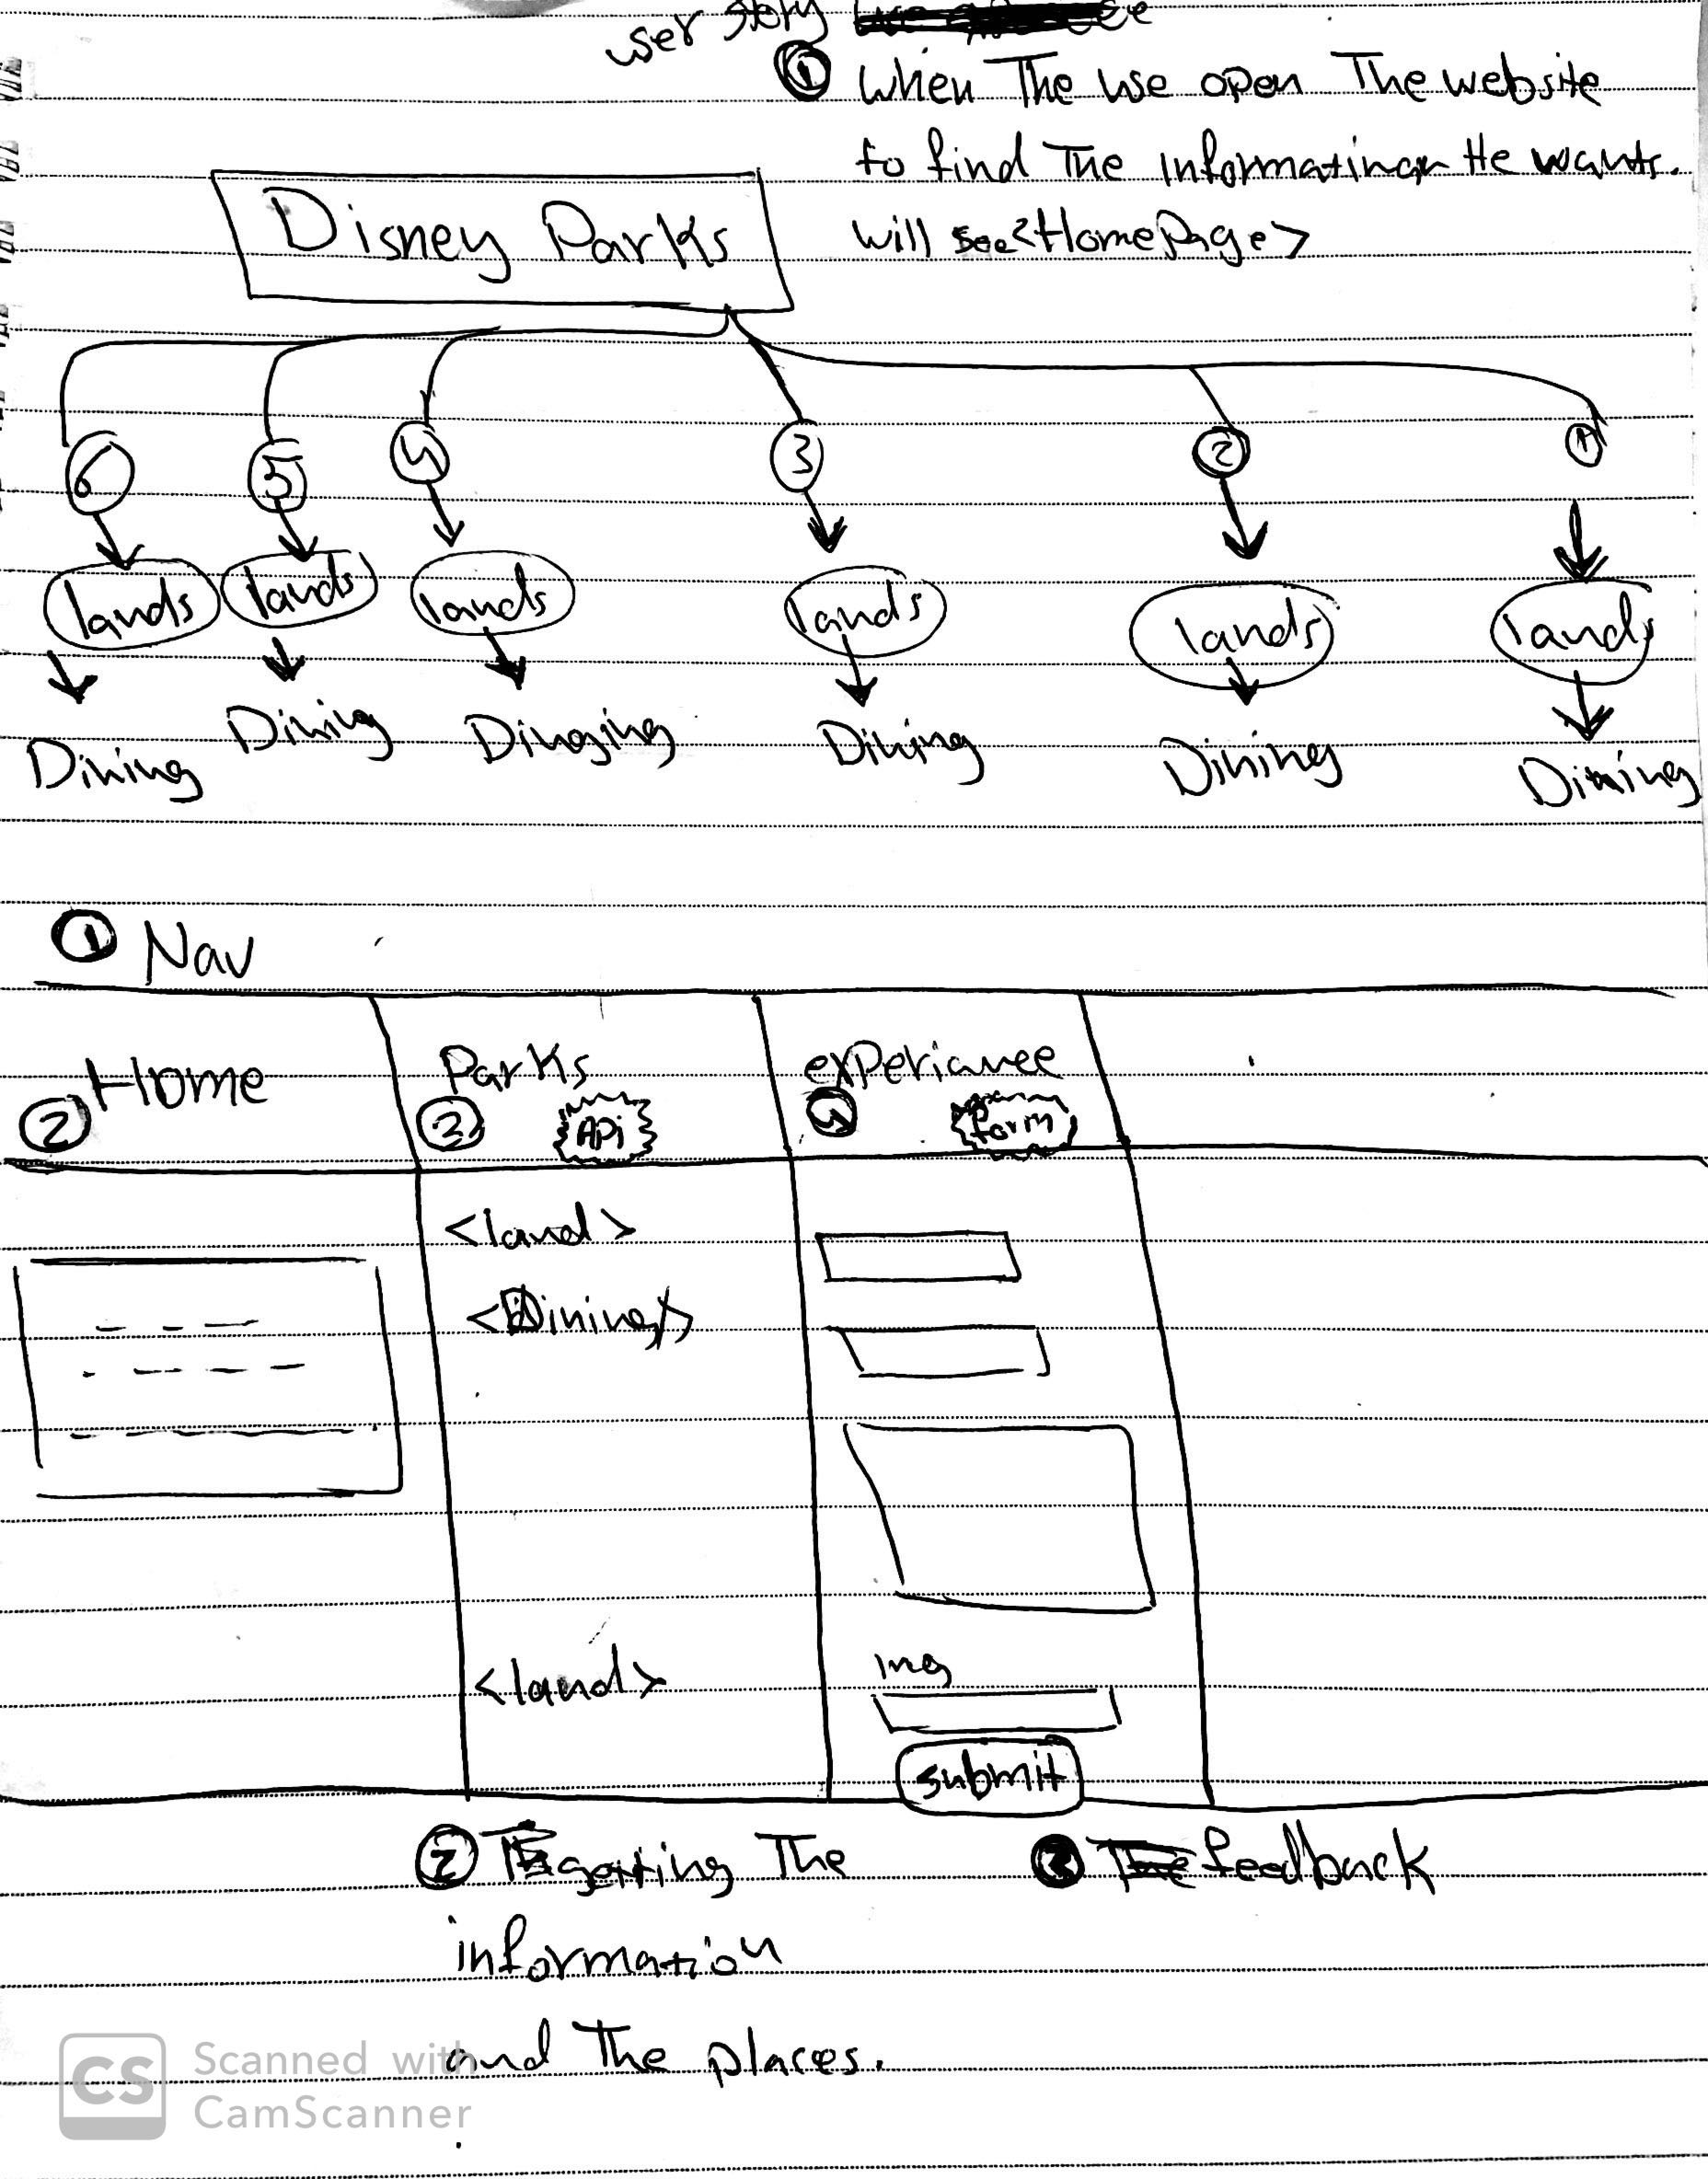 user story
① when The use open The website
to find The Informatinon He wants.
will see <HomePage>
Disney Parks
6 5 4 3 2 1
lands lands lands lands lands lands
Dining Dining Dinging Dining Dining Dining
① Nav
Home Parks experiance
② 3 APi 4 form
<land>
<Dining>
img
<land>
submit
② getting The ③ feedback
information
and The places.
CS Scanned with
CamScanner